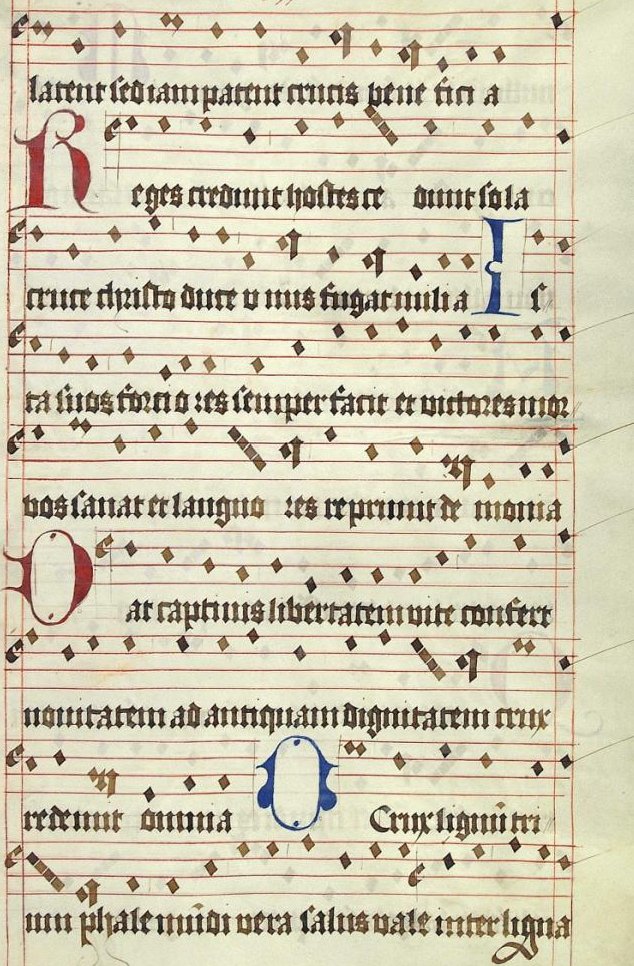 latent sed iam patent crucis bene fici a
Reges credunt hostes ce dunt sola
cruce christo duce v nus fugat milia Is
ta suos fortio res semper facit et victores mor
vos sanat et languo res reprimit de monia
Dat captivis libertatem vite confert
novitatem ad antiquam dignitatem crux
redemit omnia O Crux lignū tri
um phale mūdi vera salus vale inter ligna